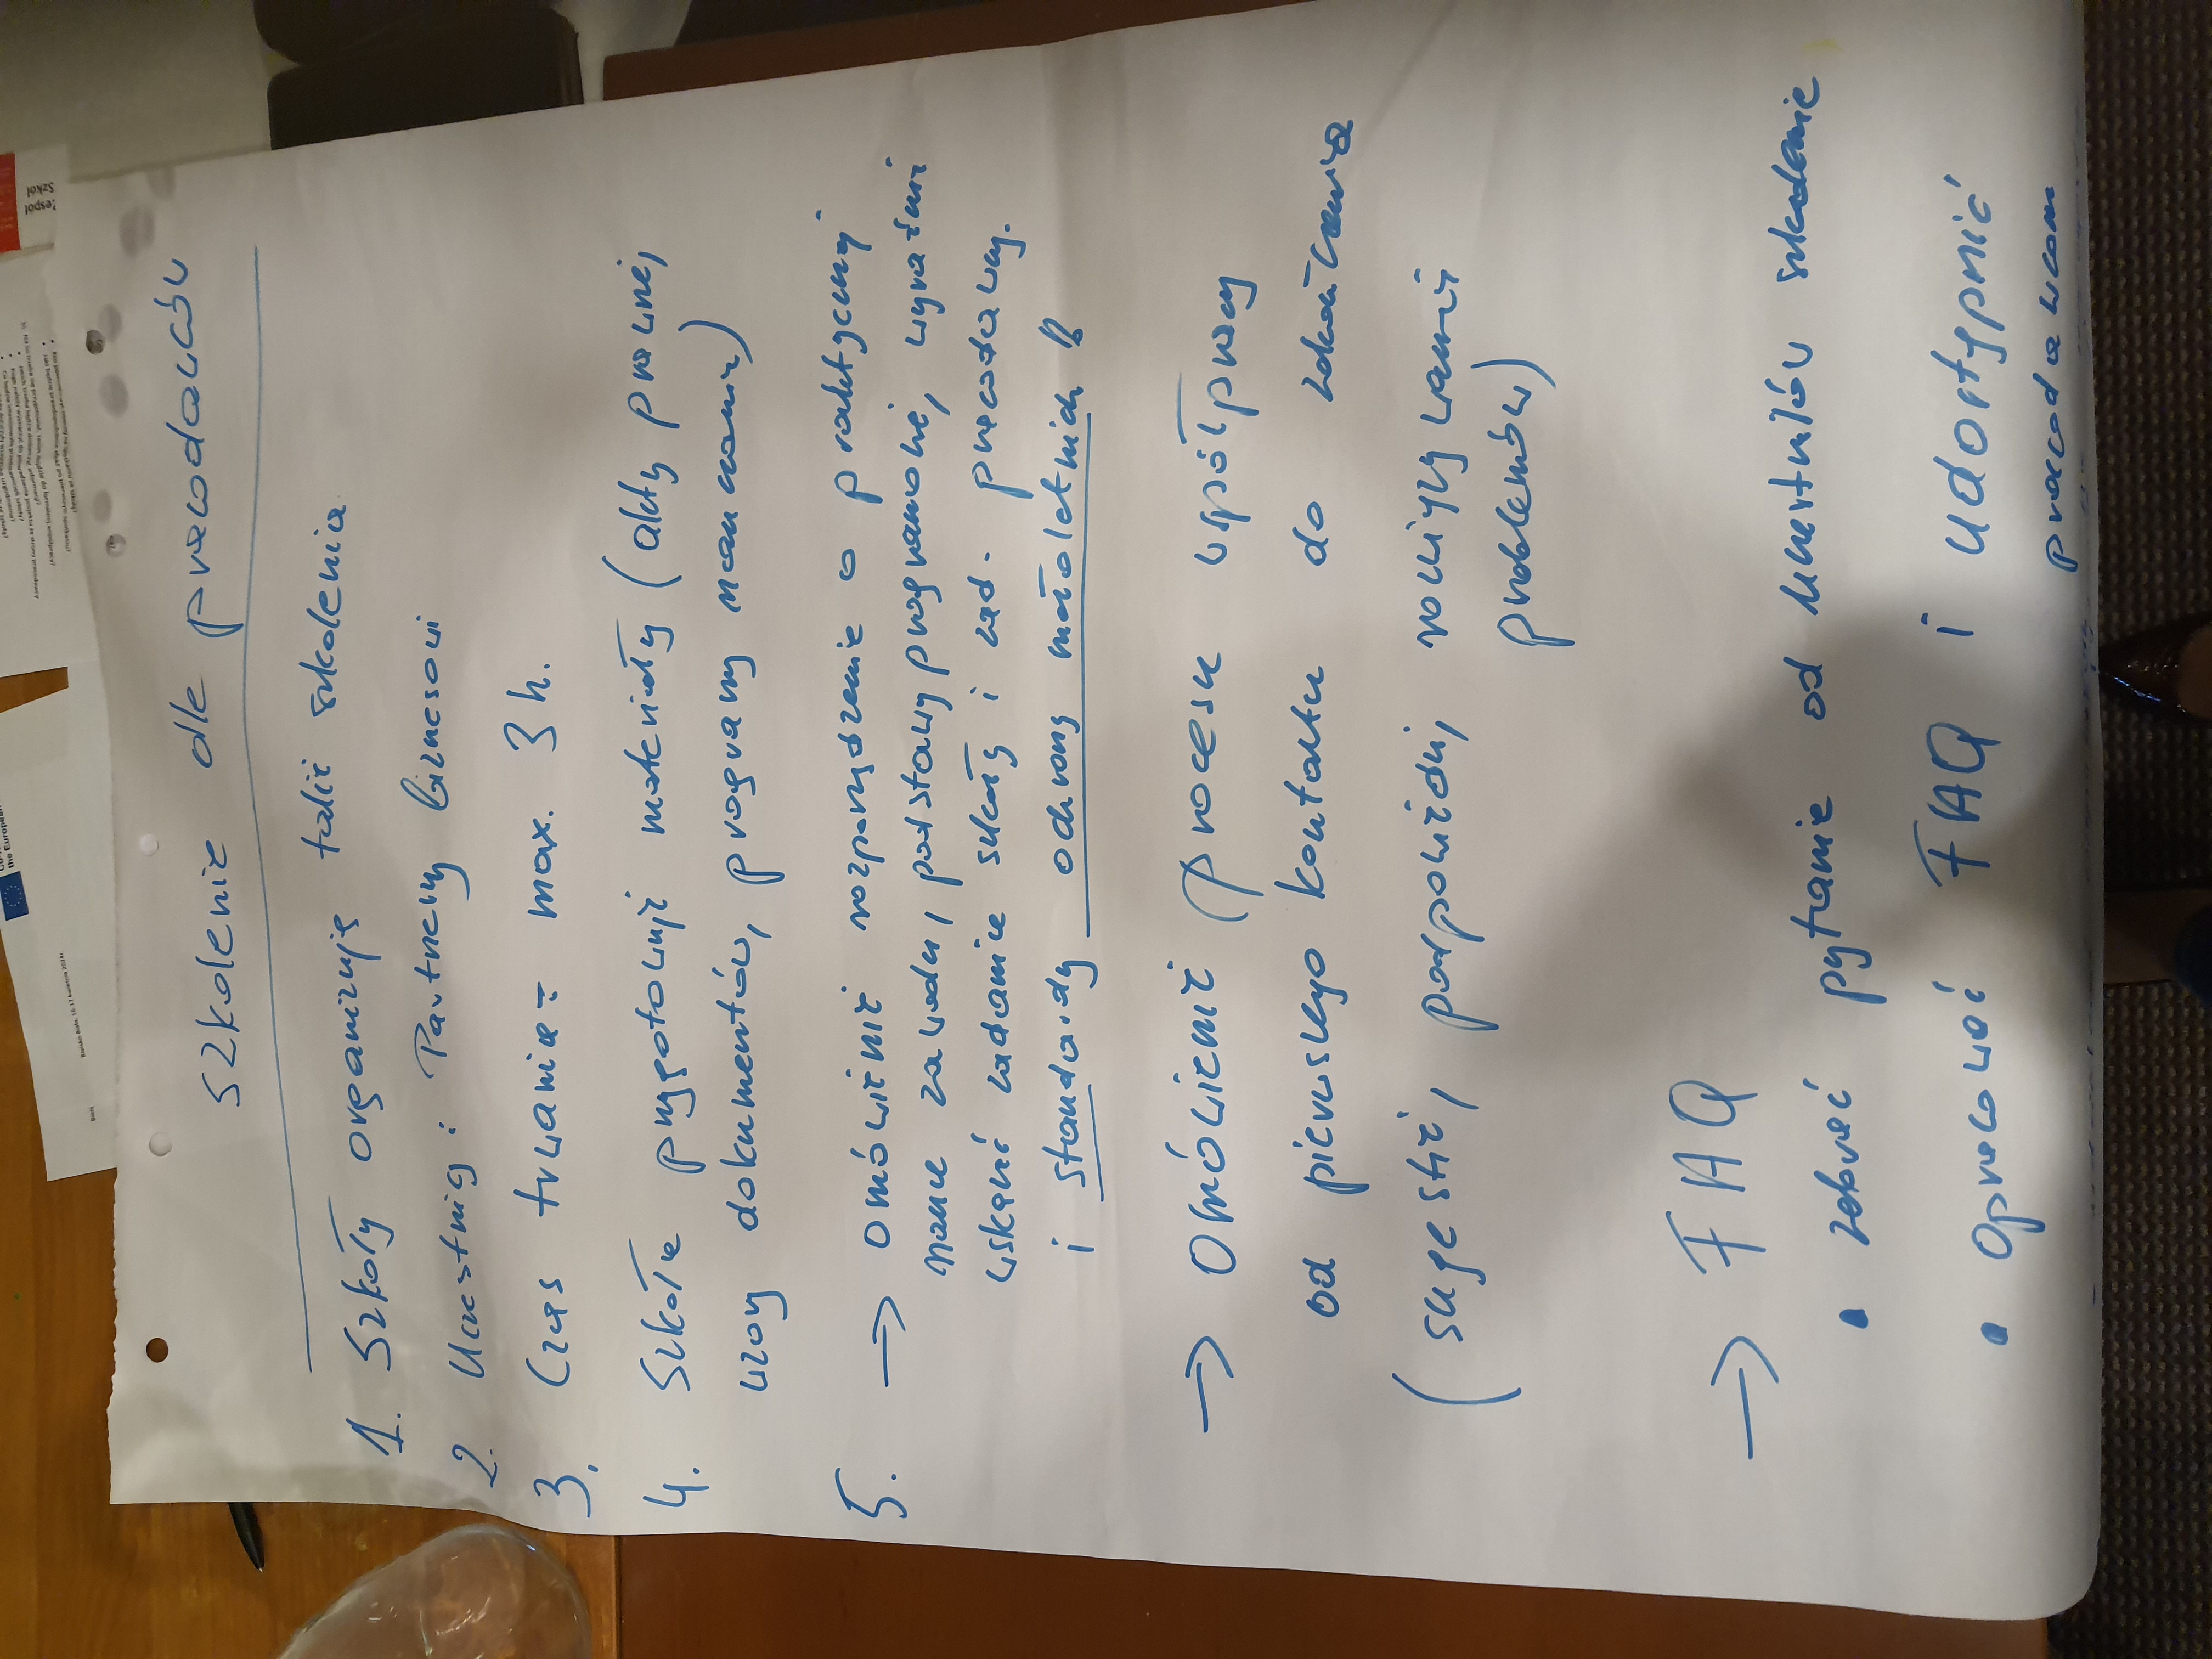 Szkolenie dla pracodawców
1. Szkoły organizuje takie szkolenia
2. Uczestnicy: Partnerzy biznesowi
3. Czas trwania: max. 3 h.
4. Szkoła przygotowuje materiały (akty prawnej,
wzory dokumentów, programy nauczania)
5. → Omówienie rozporządzenie o praktycznej
nauce zawodu, podstawy programowej, wyraźnie
wskazać zadanie szkoły i zad. pracodawcy.
i standardy ochrony małoletnich !!
→ Omówienie (procesu współpracy
od pierwszego kontaktu do zakończenia
(sugestie, podpowiedzi, rozwiązywanie
problemów)
→ FAQ
• zebrać pytanie od uczestników szkolenie
• Opracować FAQ i udostępnić
pracodawcom
Zespół
Szkół
the European